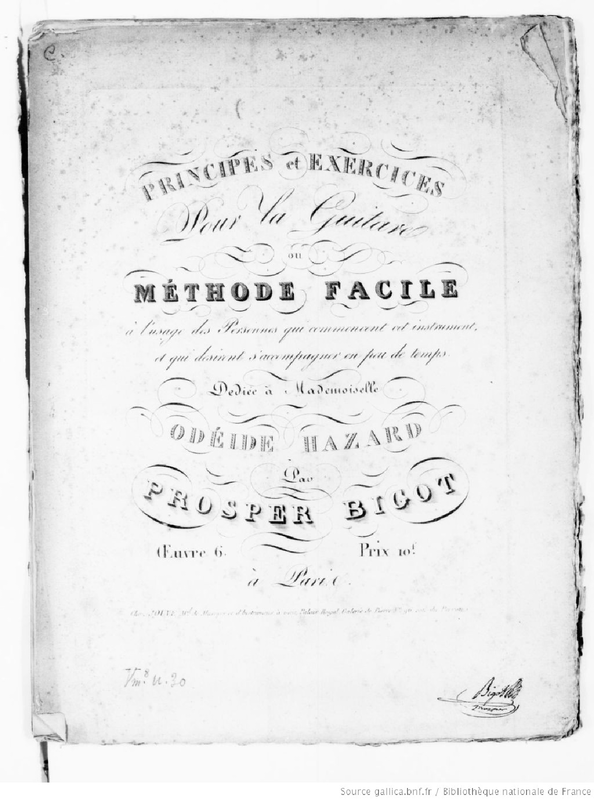 PRINCIPES et EXERCICES
Pour la Guitare
ou
MÉTHODE FACILE
à l'usage des Personnes qui commencent cet instrument,
et qui désirent s'accompagner en peu de temps.
Dediée à Mademoiselle
ODÉIDE HAZARD
Par
PROSPER BIGOT
Œuvre 6. Prix 10f.
à Paris
Palais Royal, Galerie de
Bigot
Source gallica.bnf.fr / Bibliothèque nationale de France